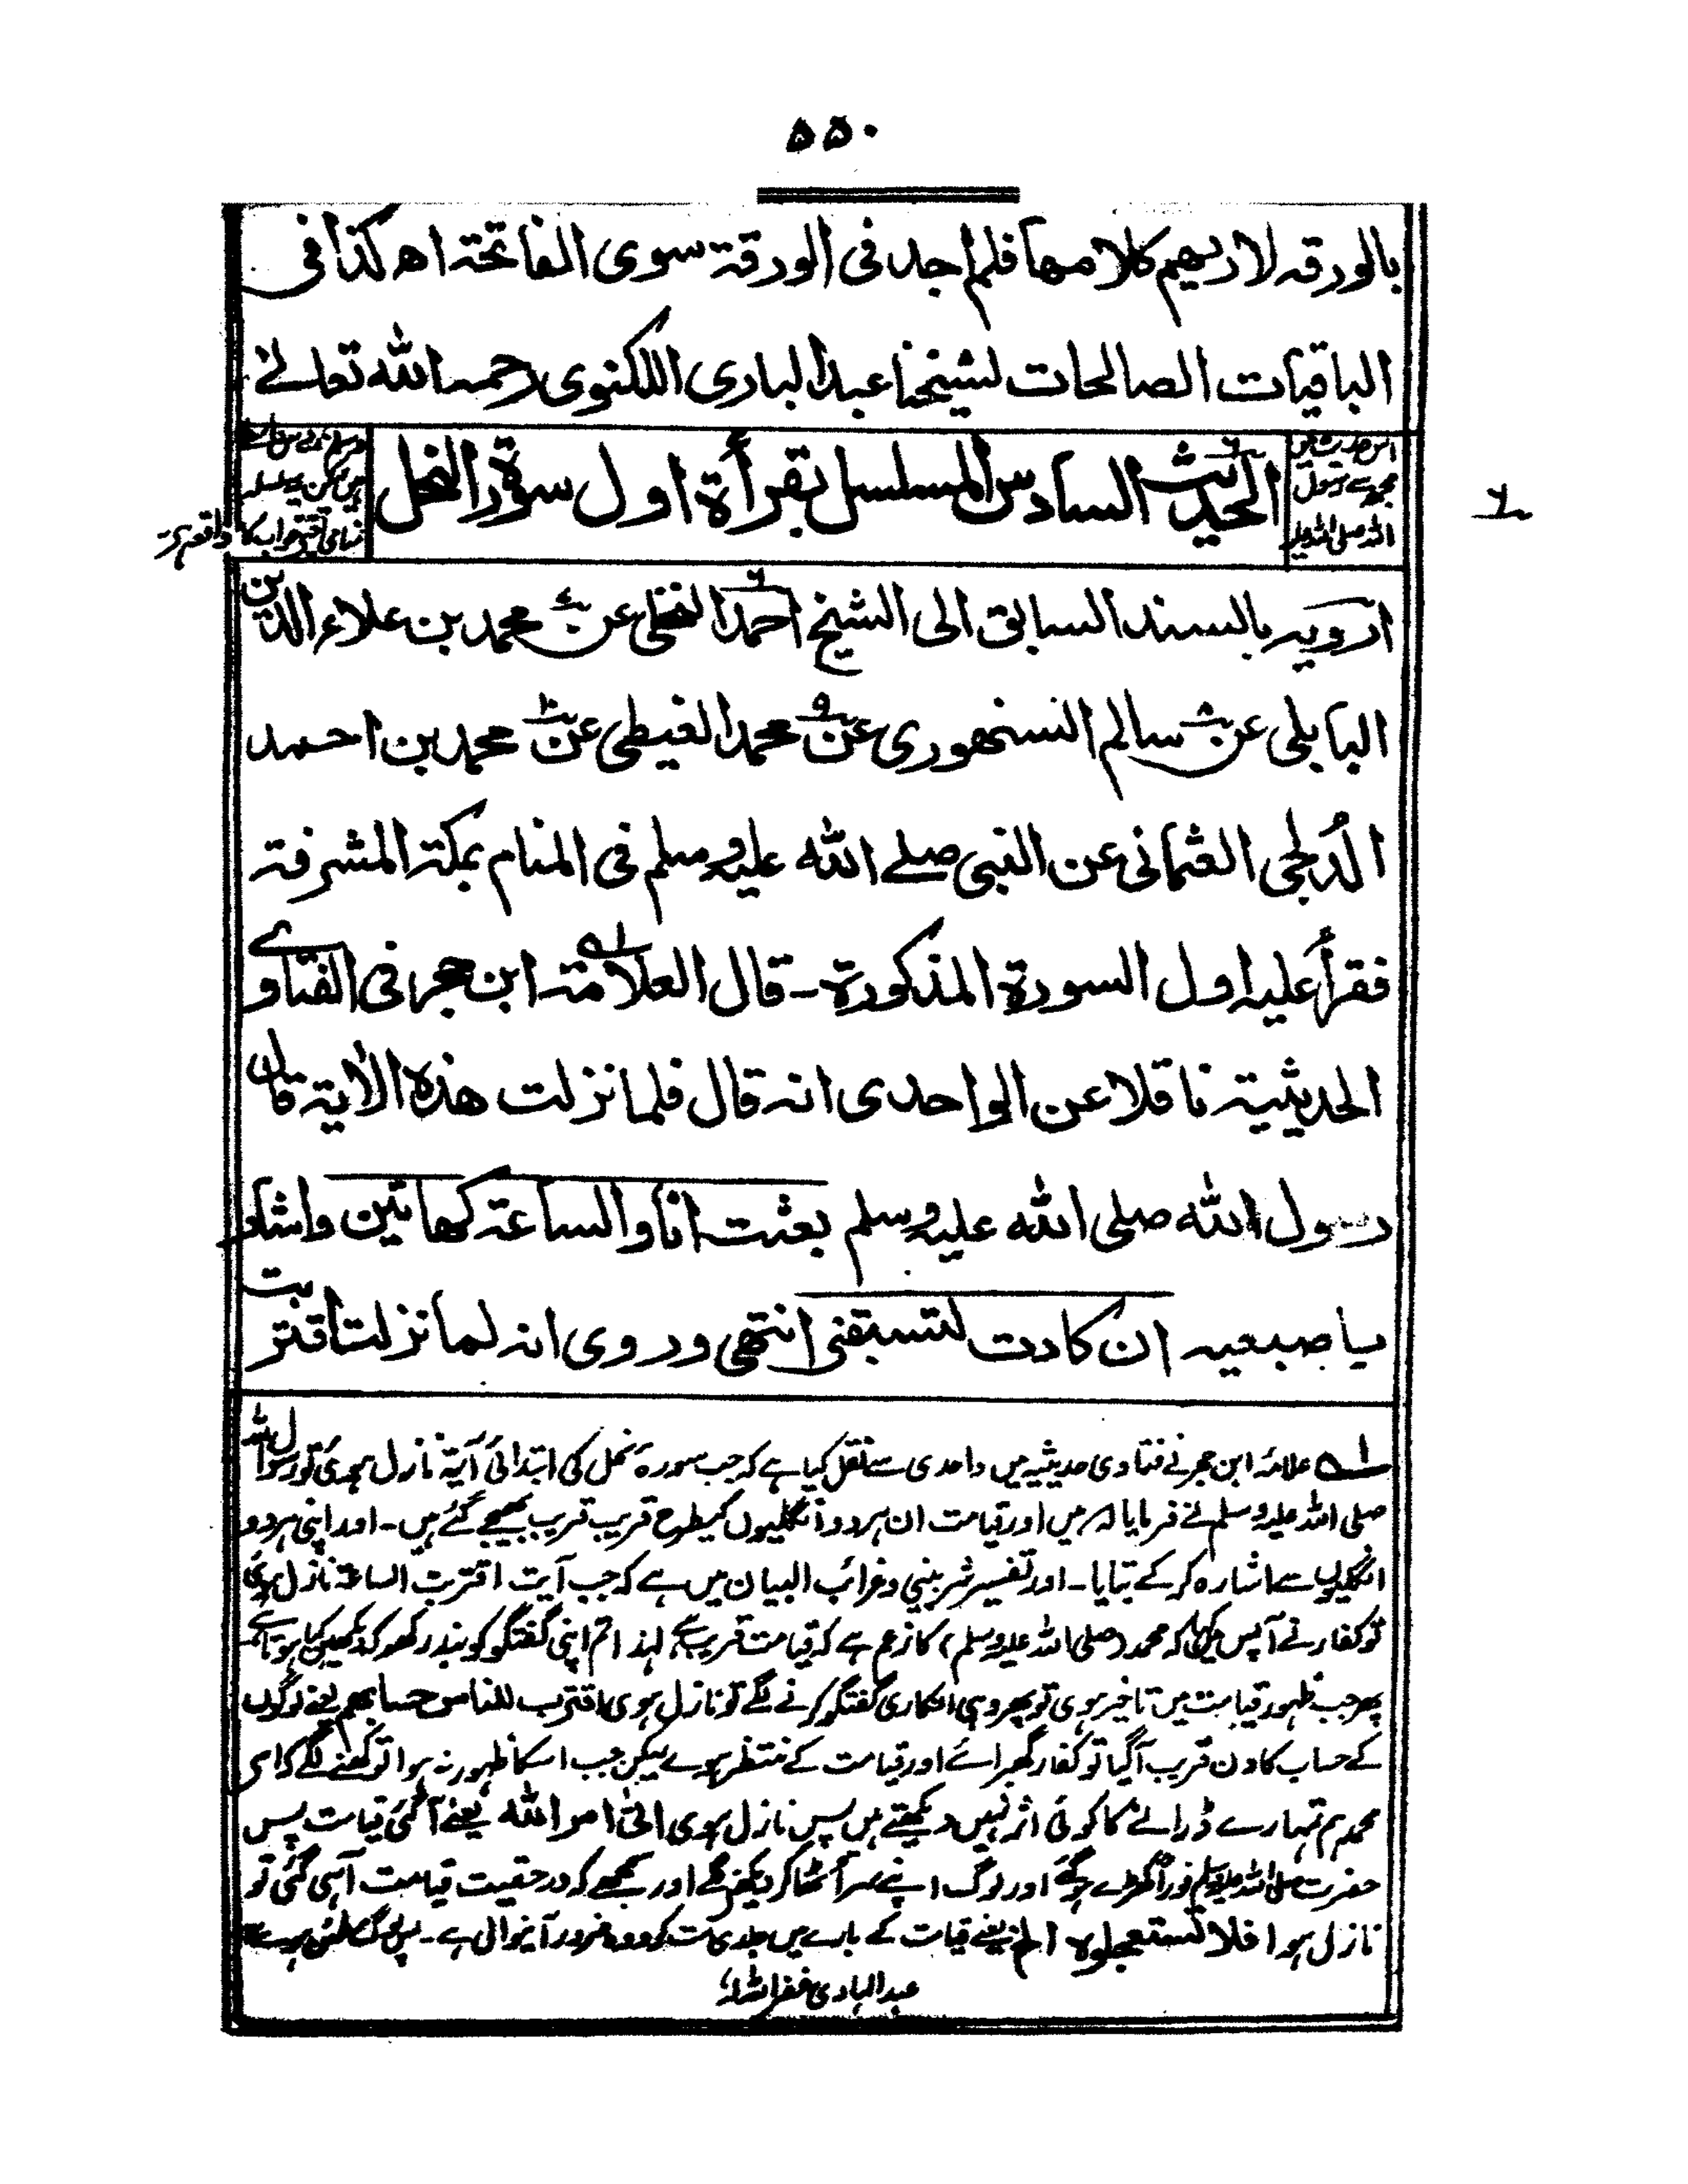 ۵۵۰
بالورقہ لاریھم کلامھا فلم اجد فی الورقۃ سوی الفاتحۃ اھ کذا فی
الباقیات الصالحات لشیخنا عبد الباری اللکنوی رحمہ اللہ تعالے
الحدیث السادس المسلسل بقرأۃ اول سورۃ النحل
ارویہ بالسند السابق الی الشیخ احمد النخلی عن محمد بن علاء الدین
البابلی عن سالم السنھوری عن محمد الغیطی عن محمد بن احمد
الدُلجی العثمانی عن النبی صلے اللہ علیہ وسلم فی المنام بمکۃ المشرفۃ
فقرأ علیہ اول السورۃ المذکورۃ ۔ قال العلامۃ ابن حجر فی الفتاوے
الحدیثیۃ ناقلا عن الواحدی انہ قال فلما نزلت ھذہ الآیۃ قال
رسول اللہ صلی اللہ علیہ وسلم بعثت انا والساعۃ کھاتین واشار
باصبعیہ ان کادت لتسبقنی انتھی وروی انہ لما نزلت اقتربت
۱ علامہ ابن حجر نے فتاوی حدیثیہ میں واحدی سے نقل کیا ہے کہ جب سورہ نحل کی ابتدائی آیۃ نازل ہوئی تو رسول اللہ
صلی اللہ علیہ وسلم نے فرمایا کہ میں اور قیامت ان ہر دو انگلیوں کیطرح قریب قریب بھیجے گئے ہیں ۔ اور اپنی ہر دو
انگلیوں سے اشارہ کر کے بتایا ۔ اور تفسیر شربینی و غرائب البیان میں ہے کہ جب آیت اقتربت الساعۃ نازل ہوئی
تو کفار نے آپس میں کہا کہ محمد (صلی اللہ علیہ وسلم) کا زعم ہے کہ قیامت قریب ہے لہذا تم اپنی گفتگو کو بند رکھو کہ دیکھیں کیا ہوتا ہے
پھر جب ظہور قیامت میں تاخیر ہوی تو پھر وہی انکاری گفتگو کرنے لگے تو نازل ہوی اقترب للناس حسابھم یعنے لوگوں
کے حساب کا دن قریب آگیا تو کفار گھبرائے اور قیامت کے منتظر ہوے لیکن جب اسکا ظہور نہ ہوا تو کہنے لگے کہ اے
محمد ہم تمہارے ڈرانے کا کوئی اثر نہیں دیکھتے ہیں پس نازل ہوی اتیٰ امر اللہ یعنے آگئی قیامت پس
حضرت صلی اللہ علیہ وسلم فوراً کھڑے ہوگئے اور لوگ اپنے سر اُٹھا کر دیکھنے لگے اور سمجھے کہ درحقیقت قیامت آہی گئی تو
نازل ہوا فلا تستعجلوہ الخ یعنے قیامت کے بارے میں جلدی مت کرو وہ ضرور آنیوالی ہے ۔ پس لوگ مطمئن ہوے
عبد الہادی غفر اللہ لہ